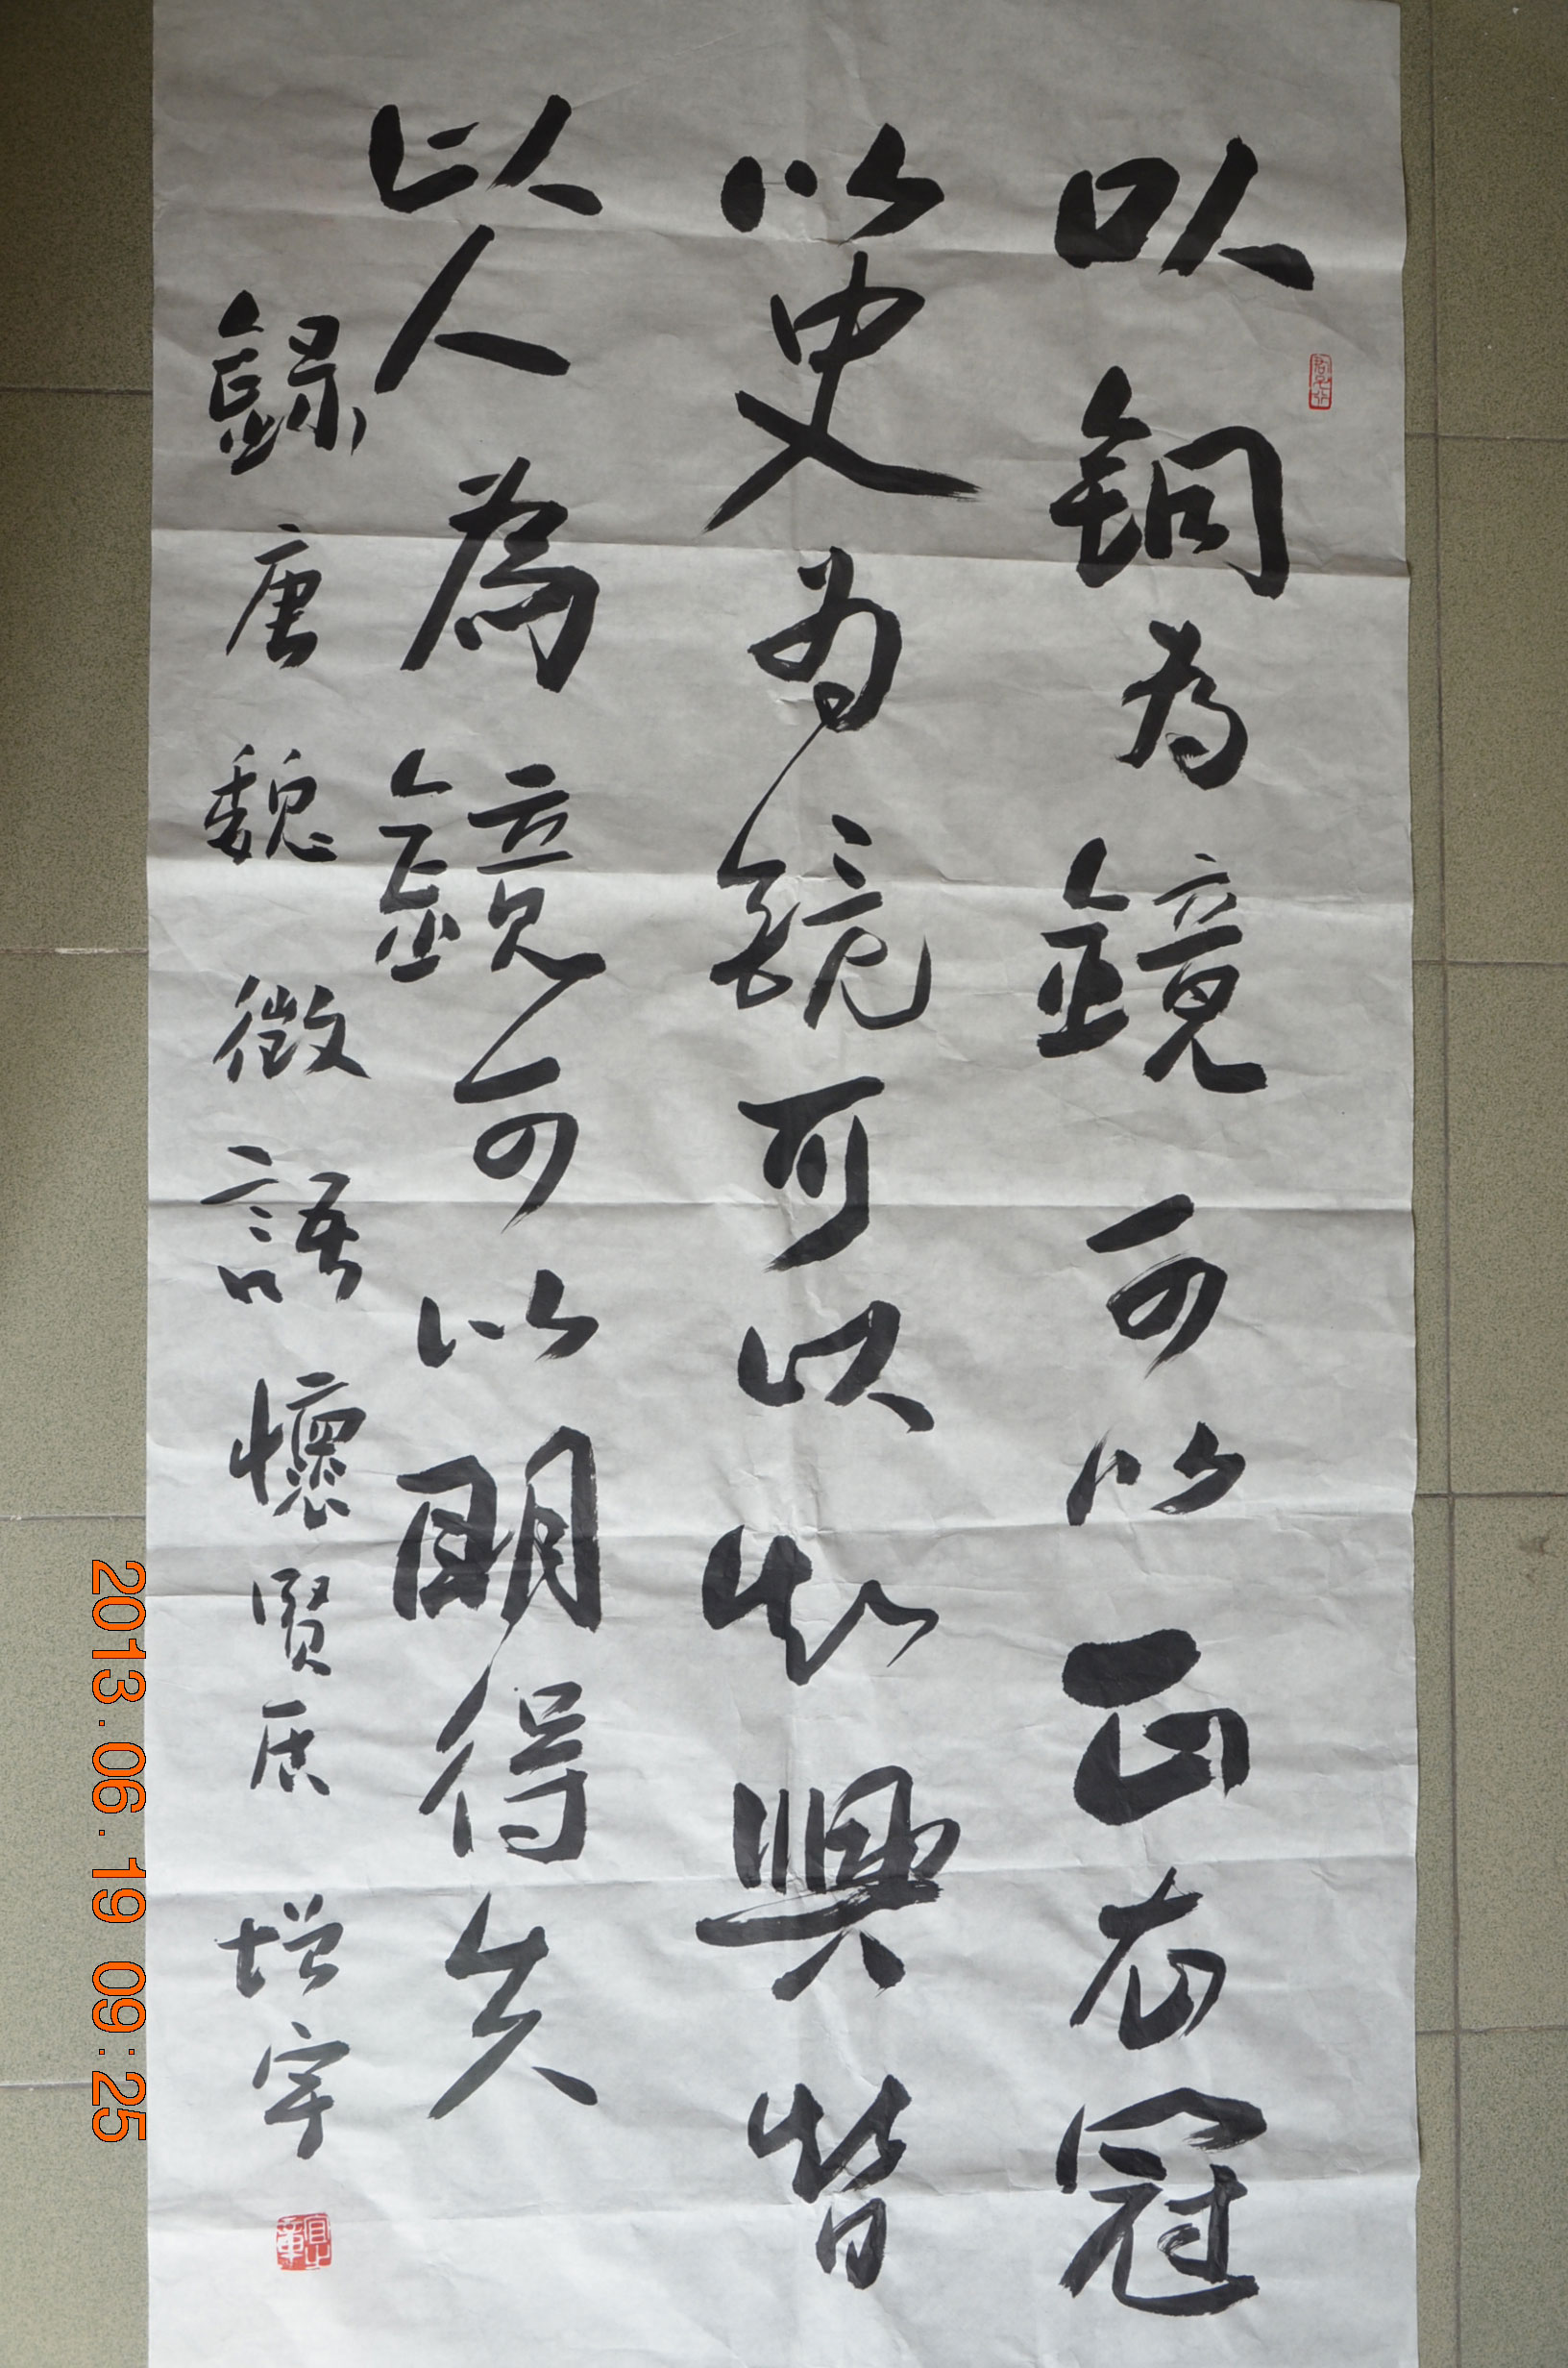 以銅為鏡可以正衣冠
以史为鏡可以知興替
以人為鏡可以明得失
錄唐魏徵語懷賢居增宇
2013.06.19 09:25